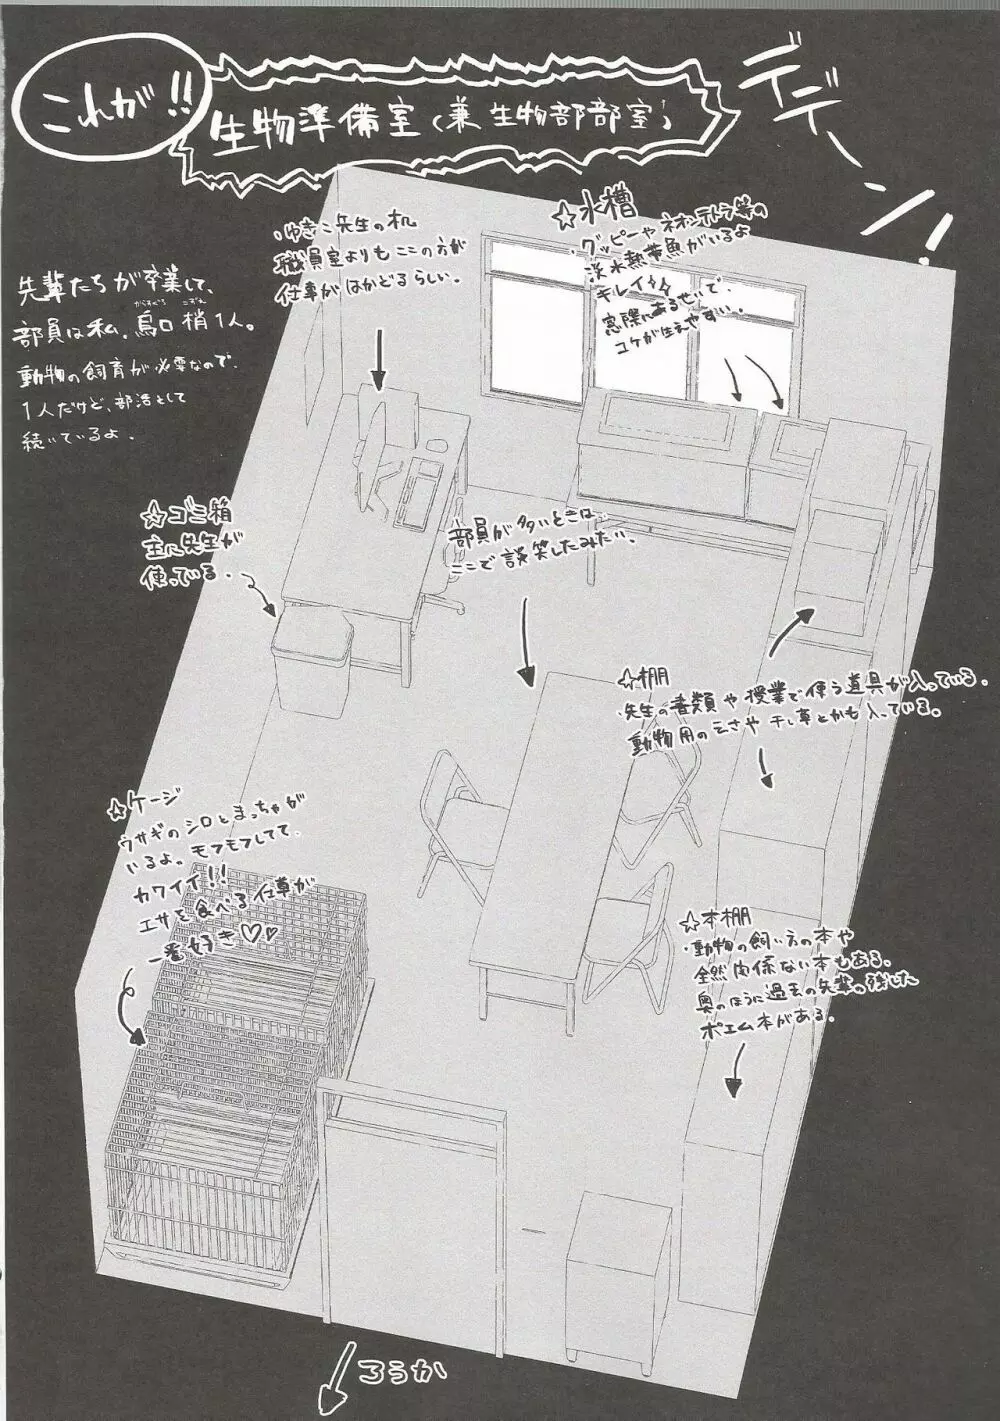 これが!!
生物準備室(兼 生物部部室)
デデーン!
先輩たちが卒業して、
部員は私、烏口 梢 1人。
からすぐち こずえ
動物の飼育が必要なので、
1人だけど、部活として
続いているよ.
ゆきこ先生の机
職員室よりもここの方が
仕事がはかどるらしい.
☆水槽
グッピーや ネオンテトラ等の
淡水熱帯魚がいるよ
キレイ
窓際にあるせいで、
コケが生えやすい..
☆ゴミ箱
主に先生が
使っている.
部員が多いときは、
ここで談笑したみたい.
☆棚
先生の書類や授業で使う道具が入っている.
動物用のえさや干し草とかも入っている.
☆ケージ
ウサギのシロとまっちゃが
いるよ. モフモフしてて
カワイイ!!
エサを食べる仕草が
一番好き♡♥
☆本棚
動物の飼い方の本や
全然関係ない本もある.
奥のほうに過去の先輩の残した
ポエム本がある.
ろうか